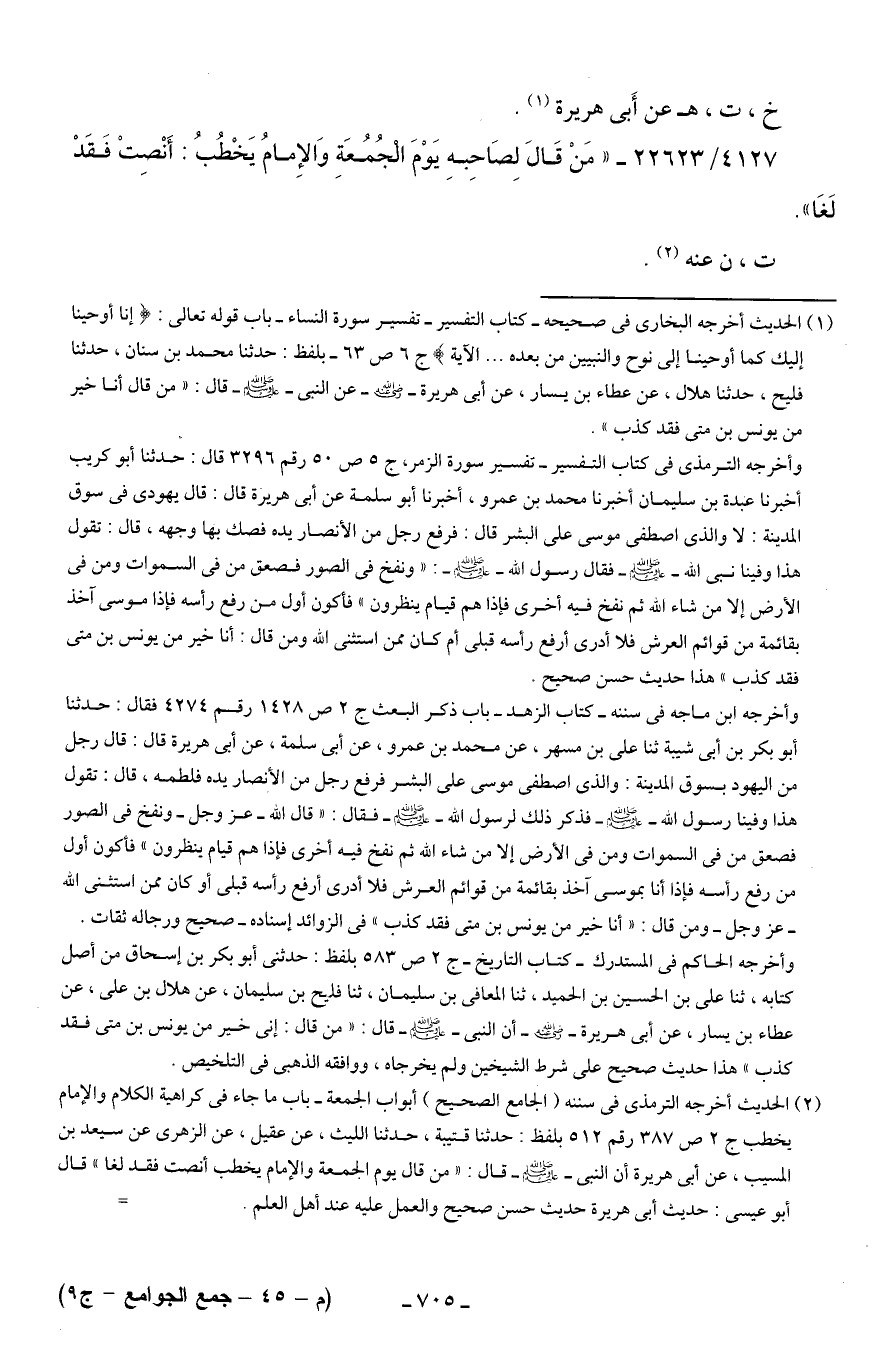 خ ، ت ، هـ عن أَبى هريرة (١) .
٢٢٦٢٣/٤١٢٧ ـ « مَنْ قَـالَ لِصَاحِبِـهِ يَوْمَ الْجُمُـعَةِ وَالإِمـامُ يَخْطُبُ : أَنْصِتْ فَـقَدْ
لَغَا» .
ت ، ن عنه (٢) .
(١) الحديث أخرجه البخارى فى صحيحه ـ كتاب التفسير ـ تفسيـر سورة النساء ـ باب قوله تعالى : ﴿ إنا أوحينا
إليك كما أوحينـا إلى نوح والنبيين من بعده ... الآية ﴾ ج ٦ ص ٦٣ ـ بلفظ : حدثنا محمـد بن سنان ، حدثنا
فليح ، حدثنا هلال ، عن عطاء بن يسار ، عن أبى هريرة ـ رضي الله عنه ـ عن النبى ـ صلى الله عليه وسلم ـ قال : « من قال أنـا خير
من يونس بن متى فقد كذب » .
وأخرجه التـرمذى فى كتاب التـفسير ـ تفسـير سورة الزمر، ج ٥ ص ٥٠ رقم ٣٢٩٦ قال : حـدثنا أبو كريب
أخبرنا عبدة بن سليمـان أخبرنا محمد بن عمرو ، أخبرنا أبو سلمـة عن أبى هريرة قال : قال يهودى فى سوق
المدينة : لا والذى اصطفى موسى على البشر قال : فرفع رجل من الأنصـار يده فصك بها وجهه ، قال : تقول
هذا وفينا نـبى الله ـ صلى الله عليه وسلم ـ فقال رسـول الله ـ صلى الله عليه وسلم ـ : « ونفخ فى الصور فـصعق من فى السـموات ومن فى
الأرض إلا من شاء الله ثم نفخ فيـه أخـرى فإذا هم قيام ينظرون » فأكون أول مـن رفع رأسه فإذا مـوسى آخذ
بقائمة من قوائم العرش فلا أدرى أرفع رأسه قبلى أم كـان ممن استثنى الله ومن قال : أنا خير من يونس بن متى
فقد كذب » هذا حديث حسن صحيح .
وأخرجه ابن مـاجه فى سننه ـ كتاب الزهـد ـ باب ذكـر البـعث ج ٢ ص ١٤٢٨ رقـم ٤٢٧٤ فقال : حـدثنا
أبو بكر بن أبى شيبة ثنا على بن مسهر ، عن مـحمد بن عمرو ، عن أبى سلمة ، عن أبى هريرة قال : قال رجل
من اليهود بـسوق المدينة : والذى اصطفى موسى على البشـر فرفع رجل من الأنصار يده فلطمـه ، قال : تقول
هذا وفينا رسـول الله ـ صلى الله عليه وسلم ـ فذكر ذلك لرسول الله ـ صلى الله عليه وسلم ـ فـقال : « قال الله ـ عـز وجل ـ ونفخ فى الصور
فصعق من فى السموات ومن فى الأرض إلا من شاء الله ثم نفخ فيـه أخرى فإذا هم قيام ينظرون » فأكون أول
من رفع رأسـه فإذا أنا بموسـى آخذ بقائمة من قوائم العـرش فلا أدرى أرفع رأسه قبلى أو كان ممن استثـنى الله
ـ عز وجل ـ ومن قال : « أنا خير من يونس بن متى فقد كذب » فى الزوائد إسناده ـ صحيح ورجاله ثقات .
وأخرجه الحـاكم فى المستدرك ـ كتـاب التاريخ ـ ج ٢ ص ٥٨٣ بلفظ : حدثنى أبو بكر بن إسـحاق من أصل
كتابه ، ثنا على بن الحسين بن الحميد ، ثنا المعافى بن سليمـان ، ثنا فليح بن سليمان ، عن هلال بن على ، عن
عطاء بن يسار ، عن أبى هـريرة ـ رضي الله عنه ـ أن النبى ـ صلى الله عليه وسلم ـ قال : « من قال : إنى خـير من يونس بن متى فـقد
كذب » هذا حديث صحيح على شرط الشيخين ولم يخرجاه ، ووافقه الذهبى فى التلخيص .
(٢) الحديث أخرجه الترمذى فى سننه ( الجامع الصحيح ) أبواب الجمعة ـ باب ما جاء فى كراهية الكلام والإمام
يخطب ج ٢ ص ٣٨٧ رقم ٥١٢ بلفظ : حدثنا قـتيبة ، حـدثنا الليث ، عن عقيل ، عن الزهرى عن سـيعد بن
المسيب ، عن أبى هريرة أن النبى ـ صلى الله عليه وسلم ـ قـال : « من قال يوم الجمـعة والإمام يخطب أنصت فقـد لغا » قـال
أبو عيسى : حديث أبى هريرة حديث حسن صحيح والعمل عليه عند أهل العلم . =
ـ ٧٠٥ ـ (م - ٤٥ - جمع الجوامع - ج٩)